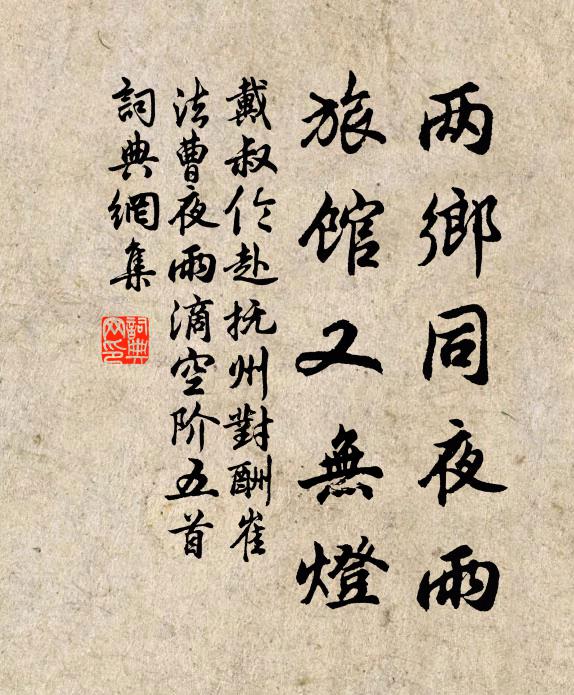 两鄉同夜雨
旅馆又無燈
戴叔伦赴抚州對酬崔
法曹夜雨滴空阶五首
詞典網集
詞典網印